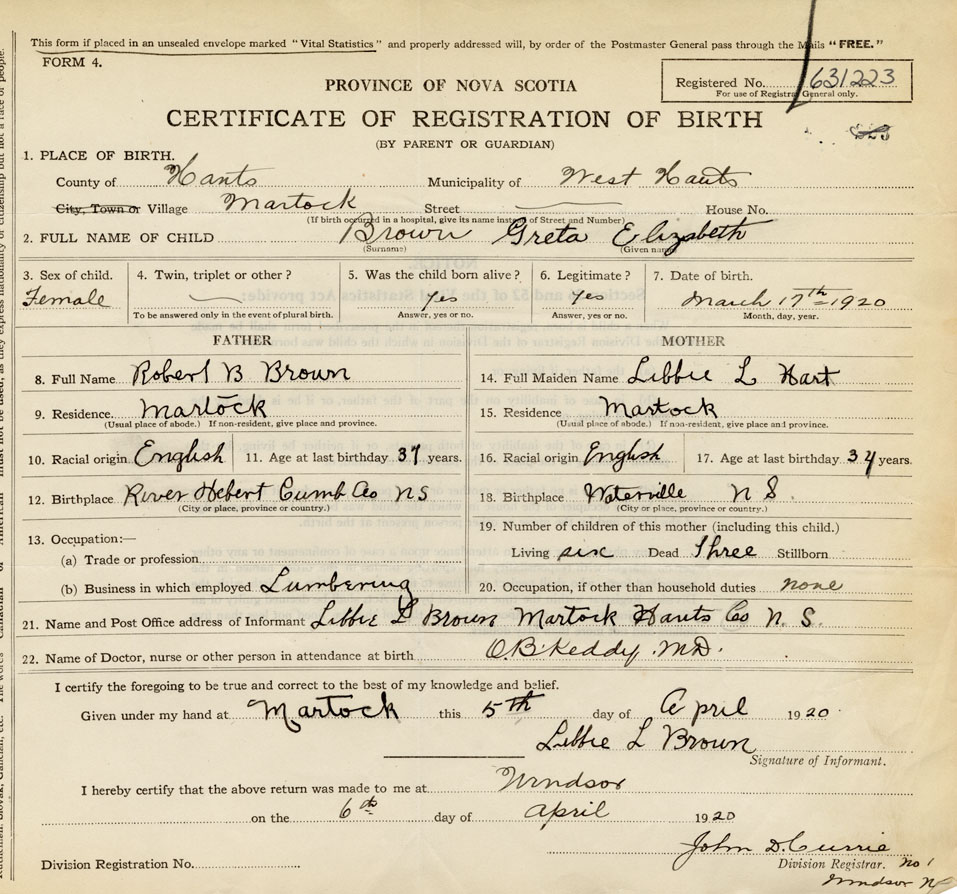 This form if placed in an unsealed envelope marked "Vital Statistics" and properly addressed will, by order of the Postmaster General pass through the Mails "FREE."
FORM 4.
Registered No. 631223
For use of Registrar General only.
PROVINCE OF NOVA SCOTIA
CERTIFICATE OF REGISTRATION OF BIRTH
(BY PARENT OR GUARDIAN)
1. PLACE OF BIRTH.
County of Hants Municipality of West Hants
City, Town or Village Martock Street House No.
(If birth occurred in a hospital, give its name instead of Street and Number)
2. FULL NAME OF CHILD Brown Greta Elizabeth
(Surname) (Given name)
3. Sex of child. 4. Twin, triplet or other? 5. Was the child born alive? 6. Legitimate? 7. Date of birth.
Female Yes Yes March 17th 1920
To be answered only in the event of plural birth. Answer, yes or no. Answer, yes or no. Month, day, year.
FATHER MOTHER
8. Full Name Robert B Brown 14. Full Maiden Name Libbie L Hart
9. Residence. Martock 15. Residence Martock
(Usual place of abode.) If non-resident, give place and province. (Usual place of abode.) If non-resident, give place and province.
10. Racial origin English 11. Age at last birthday 37 years. 16. Racial origin English 17. Age at last birthday 34 years.
12. Birthplace River Hebert Cumb Co NS 18. Birthplace Waterville N S.
(City or place, province or country.) (City or place, province or country.)
13. Occupation:— 19. Number of children of this mother (including this child.)
(a) Trade or profession Living six Dead Three Stillborn
(b) Business in which employed Lumbering 20. Occupation, if other than household duties none
21. Name and Post Office address of Informant Libbie L Brown Martock Hants Co N. S.
22. Name of Doctor, nurse or other person in attendance at birth O.B. Keddy. M.D.
I certify the foregoing to be true and correct to the best of my knowledge and belief.
Given under my hand at Martock this 5th day of April 1920
Libbie L Brown
Signature of Informant.
I hereby certify that the above return was made to me at Windsor
on the 6th day of April 1920
John D. Currie
Division Registration No. Division Registrar. No 1
Windsor